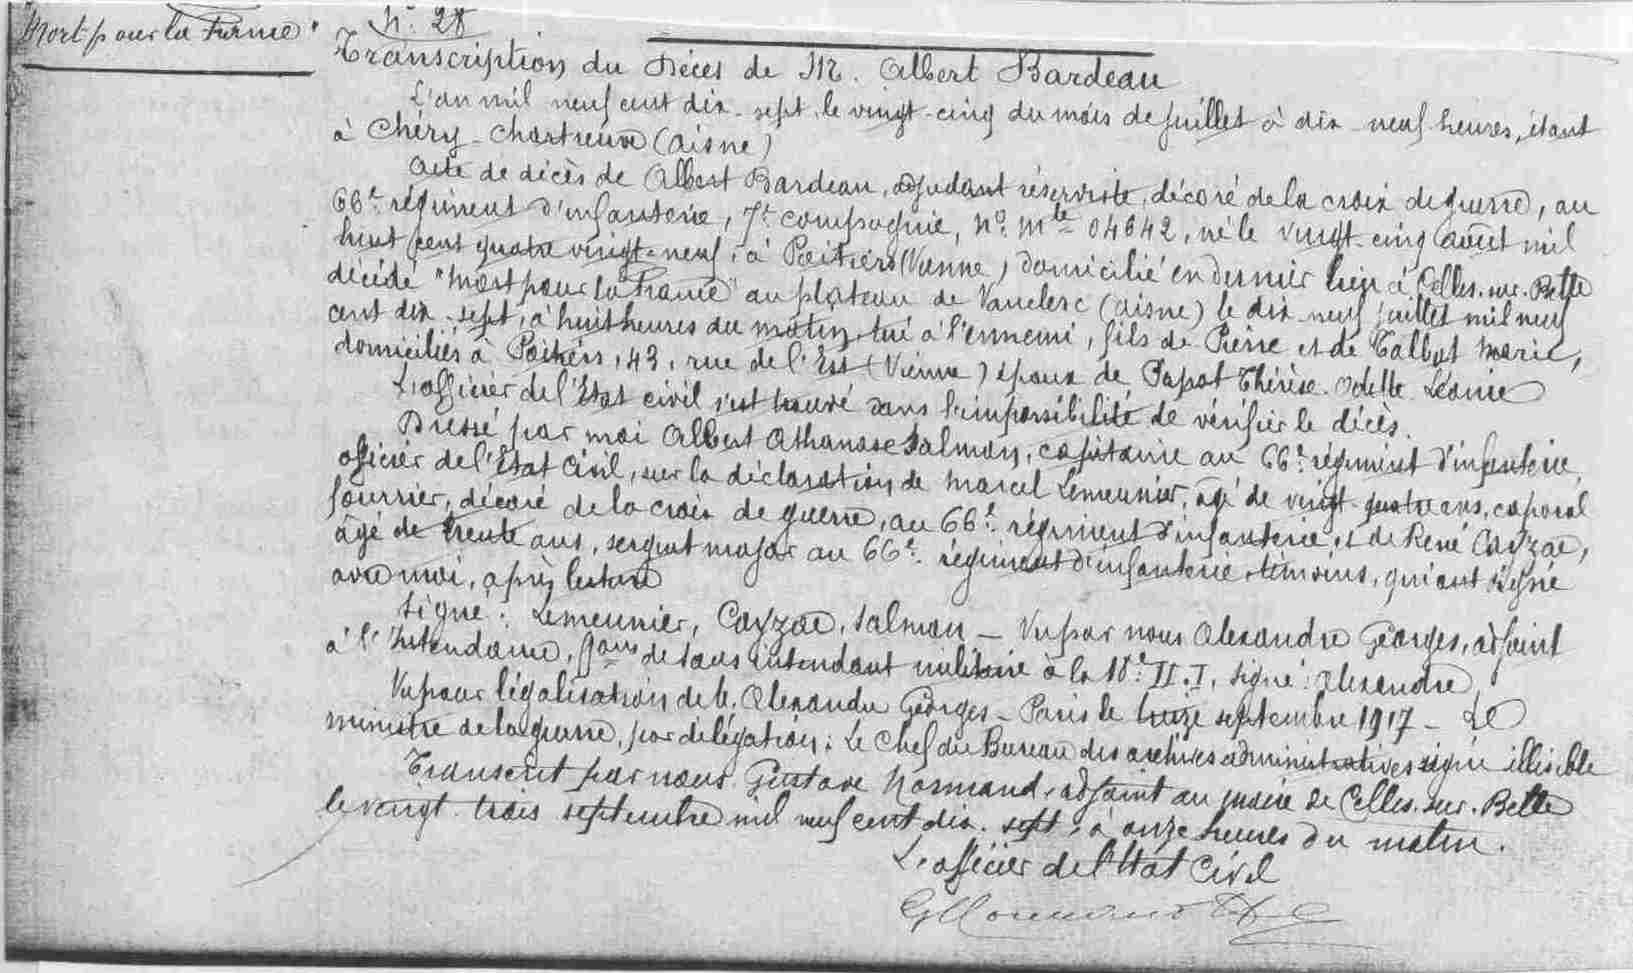 "Mort pour la France"
N° 28
Transcription du Décès de M. Albert Bardeau
L'an mil neuf cent dix-sept, le vingt-cinq du mois de juillet à dix-neuf heures, étant
à Chéry-Chartreuve (Aisne)
Acte de décès de Albert Bardeau, adjudant réserviste, décoré de la croix de guerre, au
66e régiment d'infanterie, 7e compagnie, no. mle 04642, né le vingt-cinq août mil
huit cent quatre vingt-neuf, à Poitiers (Vienne) domicilié en dernier lieu à Celles-sur-Belle
décédé "Mort pour la France" au plateau de Vauclerc (Aisne) le dix-neuf juillet mil neuf
cent dix-sept, à huit heures du matin, tué à l'ennemi, fils de Pierre et de Talbot Marie,
domiciliés à Poitiers, 43, rue de l'Est (Vienne) époux de Papot Thérèse Odette Léonie
L'officier de l'Etat civil s'est trouvé dans l'impossibilité de vérifier le décès.
Dressé par moi Albert Athanase Salmon, capitaine au 66e régiment d'infanterie,
officier de l'Etat Civil, sur la déclaration de Marcel Lemeunier, âgé de vingt-quatre ans, caporal
fourrier, décoré de la croix de guerre, au 66e régiment d'infanterie, et de René Cayzac,
âgé de trente ans, sergent major au 66e régiment d'infanterie, témoins, qui ont signé
avec moi, après lecture
Signé: Lemeunier, Cayzac, Salmon — Vu par nous Alexandre Georges, adjoint
à l'Intendance, de sous intendant militaire à la 18e D. I. signé: Alexandre
Vu pour légalisation de M. Alexandre Georges - Paris le treize septembre 1917 - Le
ministre de la guerre, par délégation: Le Chef du Bureau des archives administratives signé illisible
Transcrit par nous Gustave Normand, adjoint au maire de Celles-sur-Belle
le vingt-trois septembre mil neuf cent dix-sept, à onze heures du matin.
L'officier de l'Etat Civil
G Normand